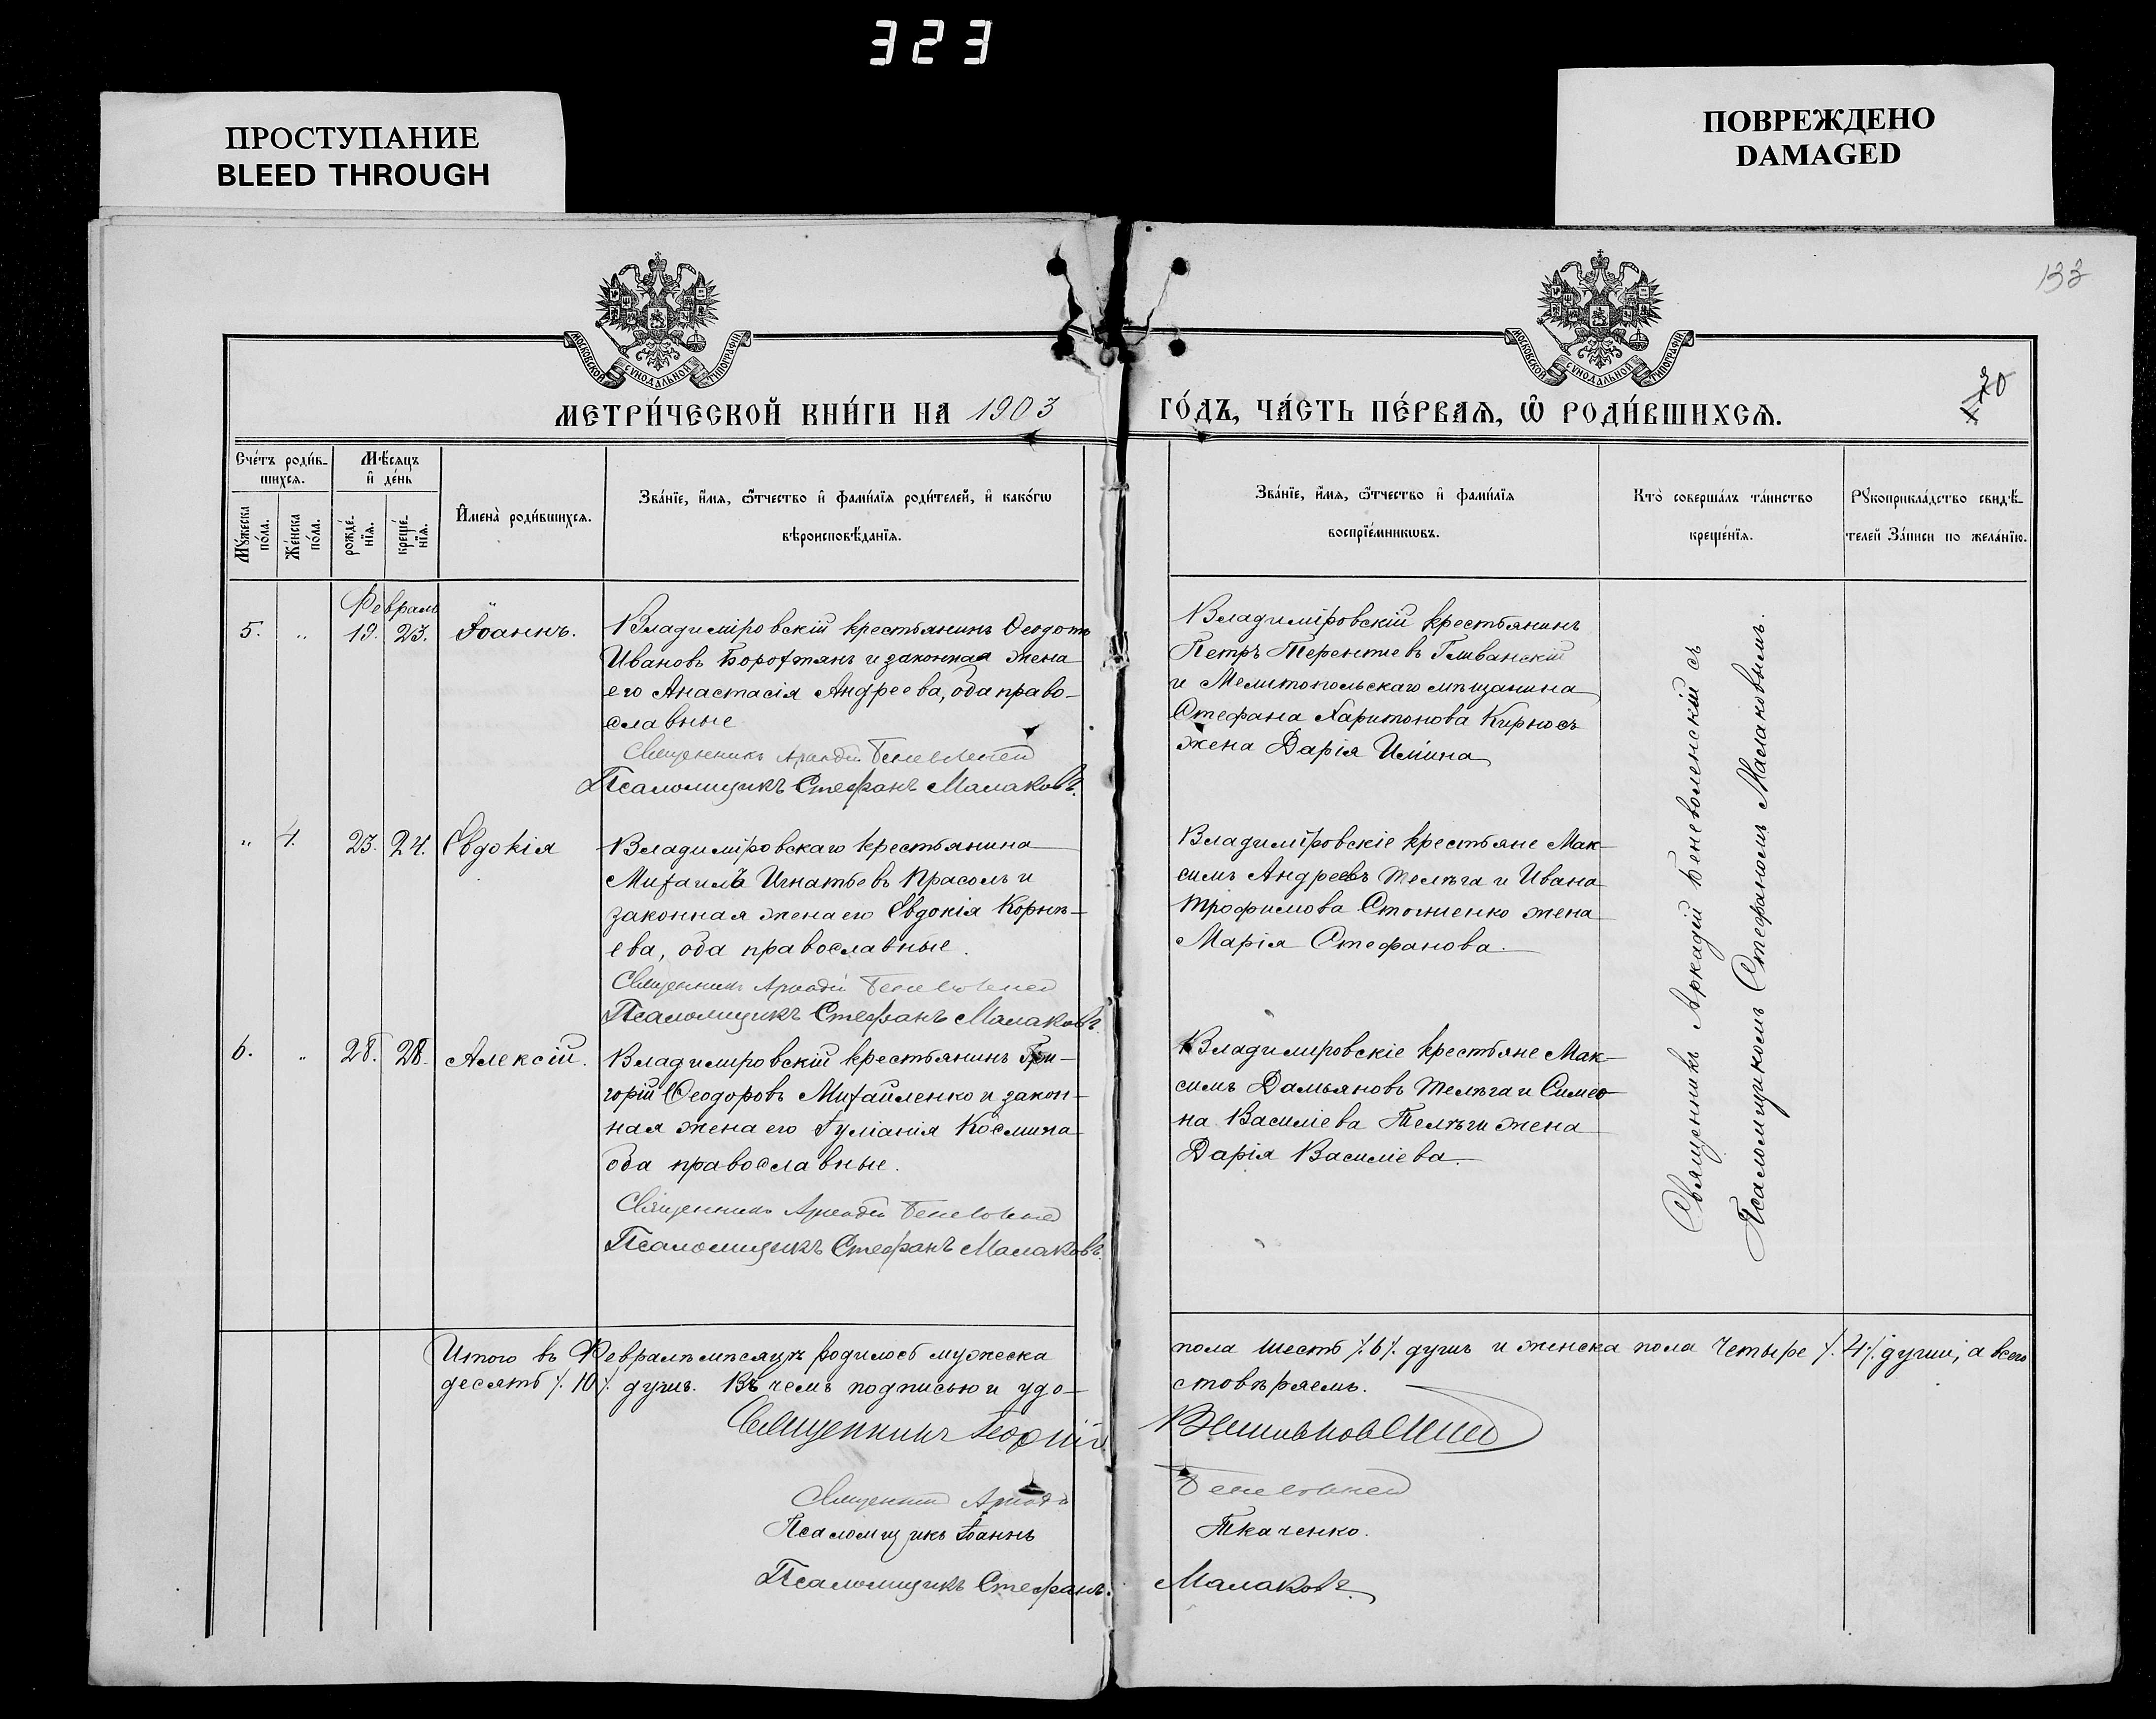 323
ПРОСТУПАНИЕ
BLEED THROUGH
ПОВРЕЖДЕНО
DAMAGED
133
МОСКОВСКОЙ СУНОДАЛЬНОЙ ТИПОГРАФІИ
МОСКОВСКОЙ СУНОДАЛЬНОЙ ТИПОГРАФІИ
МЕТРИ́ЧЕСКОЙ КНИ́ГИ НА 1903 ГО́ДЪ, ЧА́СТЬ ПЕ́РВАѦ, Ѿ РОДИ́ВШИХСѦ.
Сче́тъ роди́в-
шихсѧ.
Мѣ́сѧцъ
и҆ де́нь
Мꙋ́жеска
по́ла.
Же́нска
по́ла.
рожде́-
нїѧ.
креще́-
нїѧ.
И҆мена̀ роди́вшихсѧ.
Зва́нїе, и҆́мѧ, ѻ҆́тчество и҆ фами́лїѧ роди́телей, и҆ како́гѡ
вѣроисповѣ́данїѧ.
Зва́нїе, и҆́мѧ, ѻ҆́тчество и҆ фами́лїѧ
воспрїе́мникѡвъ.
Кто̀ соверша́лъ та́инство
креще́нїѧ.
Рꙋкоприкла́дство свидѣ́-
телей За́писи по жела́нїю.
Февраль
5. „ 19. 23. Іоаннъ.
Владимiровскiй крестьянинъ Ѳеодотъ
Ивановъ Борохтянъ и законная жена
его Анастасiя Андреева, оба право-
славные
Священникъ Аркадiй Беневоленскiй
Псаломщикъ Стефанъ Малаковъ.
Владимiровскiй крестьянинъ
Петръ Терентiевъ Гливанскiй
и Мелитопольскаго мѣщанина
Стефана Харитонова Кирносъ
жена Дарiя Илiина
„ 4. 23. 24. Евдокiя
Владимiровскаго крестьянина
Михаилъ Игнатьевъ Прасолъ и
законная жена его Евдокiя Корнѣ-
ева, оба православные.
Священникъ Аркадiй Беневоленскiй
Псаломщикъ Стефанъ Малаковъ.
Владимiровскiе крестьяне Мак-
симъ Андреевъ Телѣга и Ивана
Трофимова Стогниенко жена
Марiя Стефанова.
6. „ 28. 28. Алексiй.
Владимировскiй крестьянинъ Гри-
горiй Ѳеодоровъ Михайленко и закон-
ная жена его Iулiанiя Космина
оба православные.
Священникъ Аркадiй Беневоленскiй
Псаломщикъ Стефанъ Малаковъ.
Владимировскiе крестьяне Мак-
симъ Дамьяновъ Телѣга и Симео-
на Василiева Телѣги жена
Дарiя Василiева.
Священникъ Аркадiй Беневоленскiй съ
Псаломщикомъ Стефаномъ Малаковымъ.
Итого въ Февралѣ мѣсяцѣ родилось мужеска пола шесть /.6/. душъ и женска пола четыре /.4/. души, а всего
десять /.10/. душъ. Въ чемъ подписью и удо- стовѣряемъ.
Священникъ Георгiй
Священникъ Аркадiй Беневоленскiй
Псаломщикъ Iоаннъ Ткаченко.
Псаломщикъ Стефанъ Малаковъ.